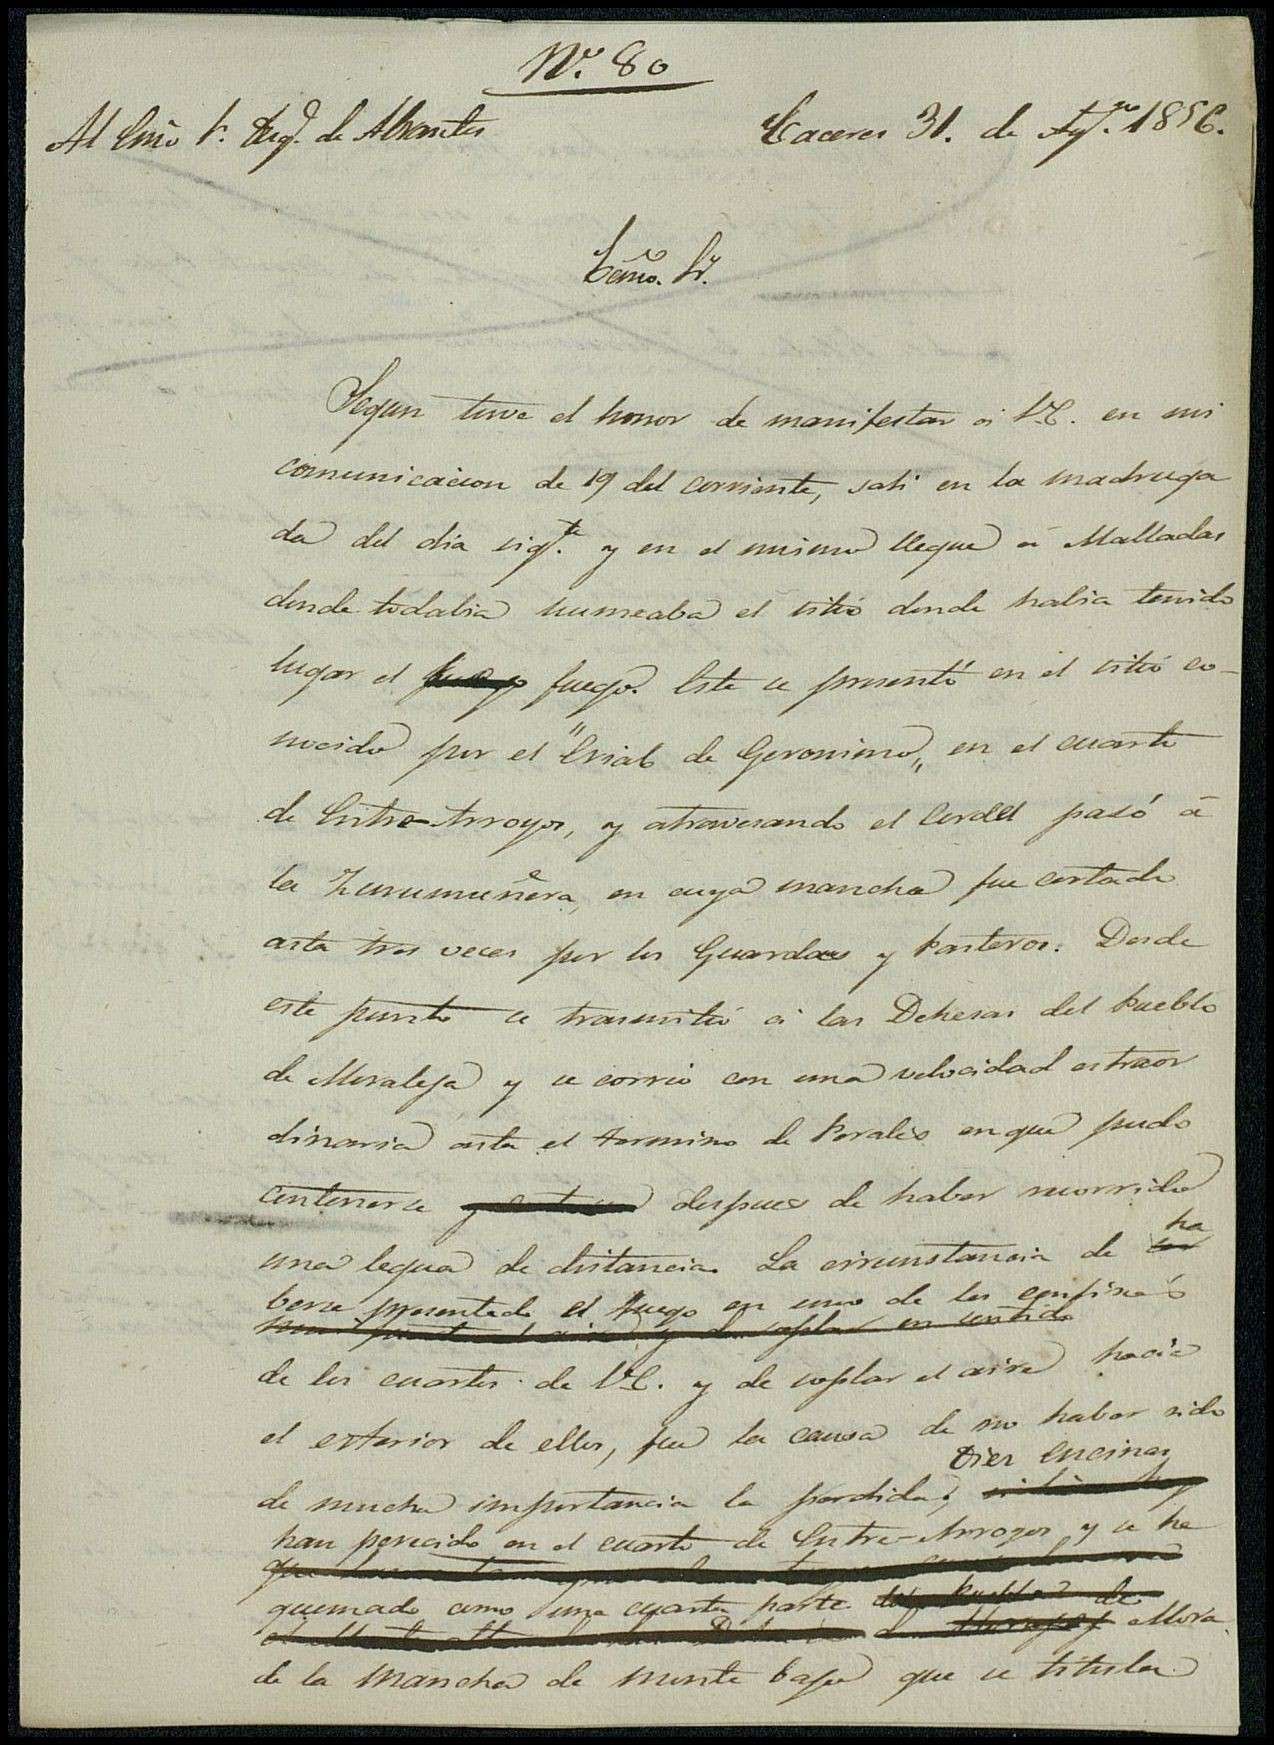 Nº. 80
Al Exmo Sr. Duq. de Abrantes
Caceres 31. de Agto. 1856.
Exmo. Sr.
Segun tuve el honor de manifestar á V.E. en mi
comunicacion de 19 del corriente, sali en la madruga
da del dia sigte. y en el mismo llegue á Malladas
donde todabia humeaba el sitio donde habia tenido
lugar el fuego fuego. Este se presentó en el sitio co-
nocido por el "Erial de Geronimo„ en el cuarto
de Entre-Arroyos, y atravesando el Cordel pasó á
la Zumumuñera, en cuya mancha fue cortado
asta tres veces por los Guardas y Pastores. Desde
este punto se trasmitió á las Dehesas del Pueblo
de Moraleja y se corrió con una velocidad estraor
dinaria asta el termino de Perales en que pudo
contenerse despues de haber recorrido
una legua de distancia. La circunstancia de ha
berse presentado el fuego en uno de los confines
de los cuartos de V.E. y de soplar el aire hacia
el exterior de ellos, fue la causa de no haber sido
de mucha importancia la perdida; Diez encinas
han perecido en el cuarto de Entre-Arroyos y se ha
quemado como una cuarta parte del Pueblo de
Mora
de la mancha de monte bajo que se titula